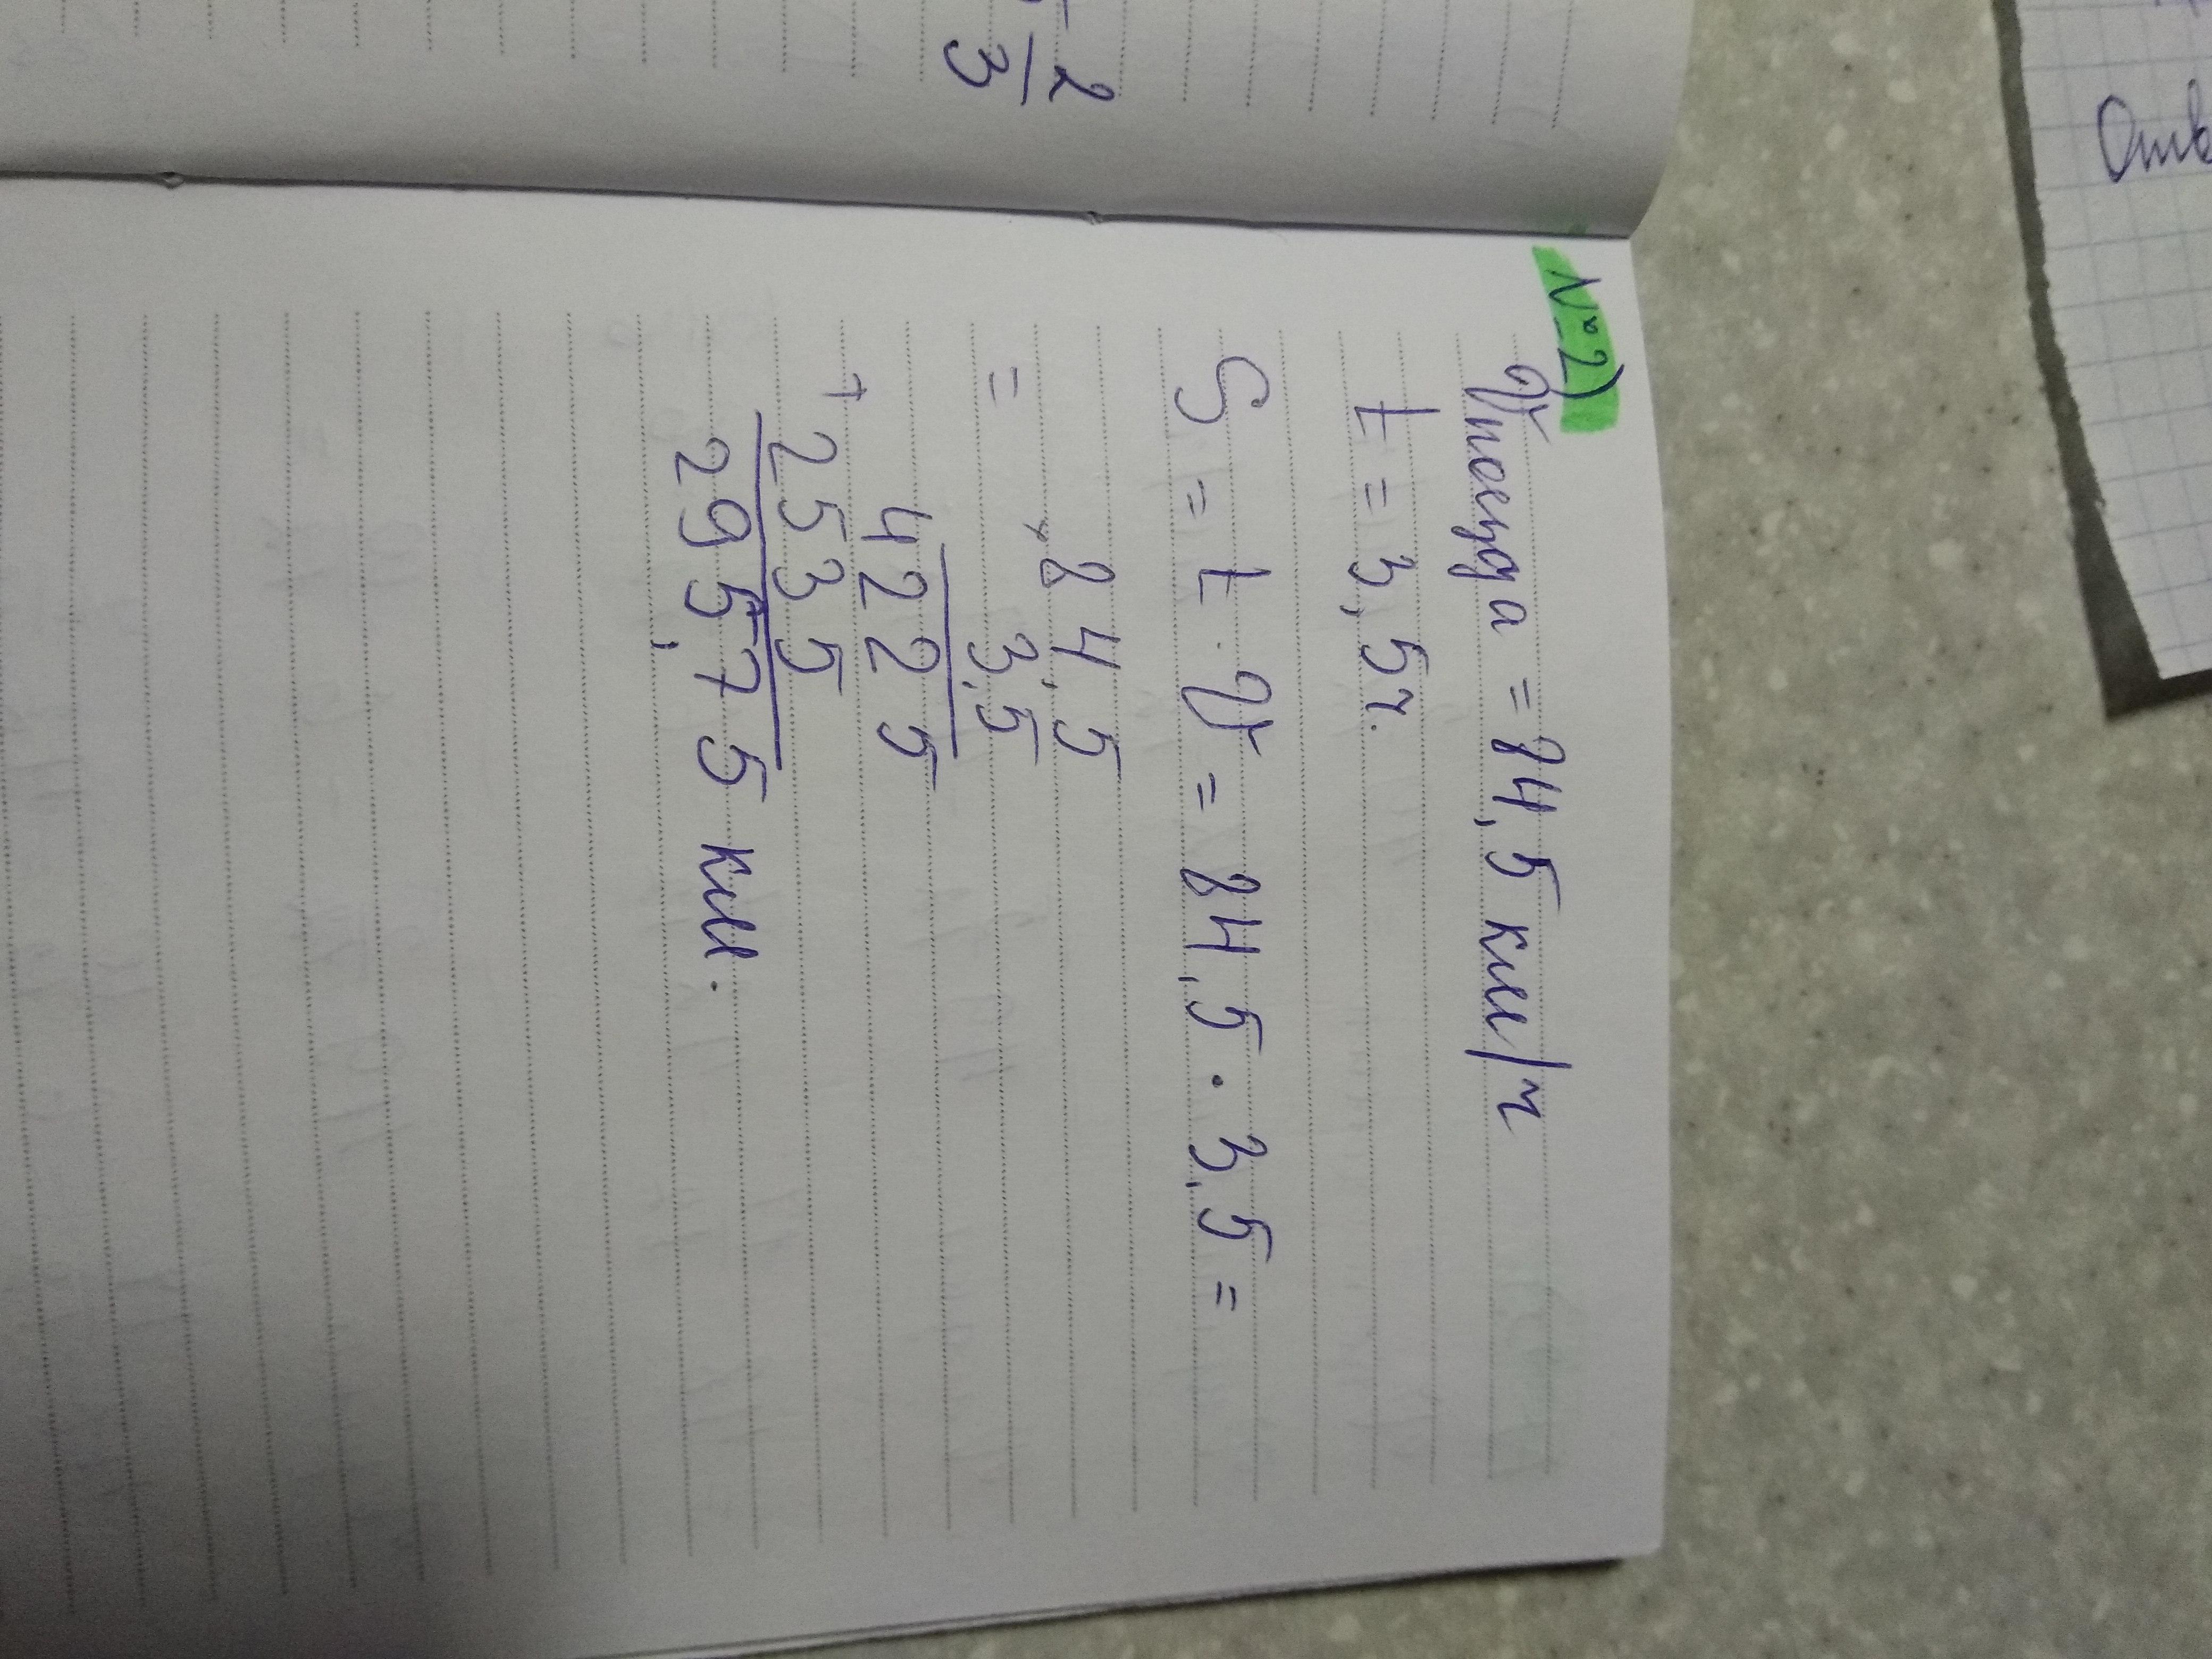 2
3
№2)
v поезда = 84,5 км/ч
t = 3,5ч.
S = t · v = 84,5 · 3,5 =
= × 84,5
3,5
4225
+ 2535
295,75 км.
Отв